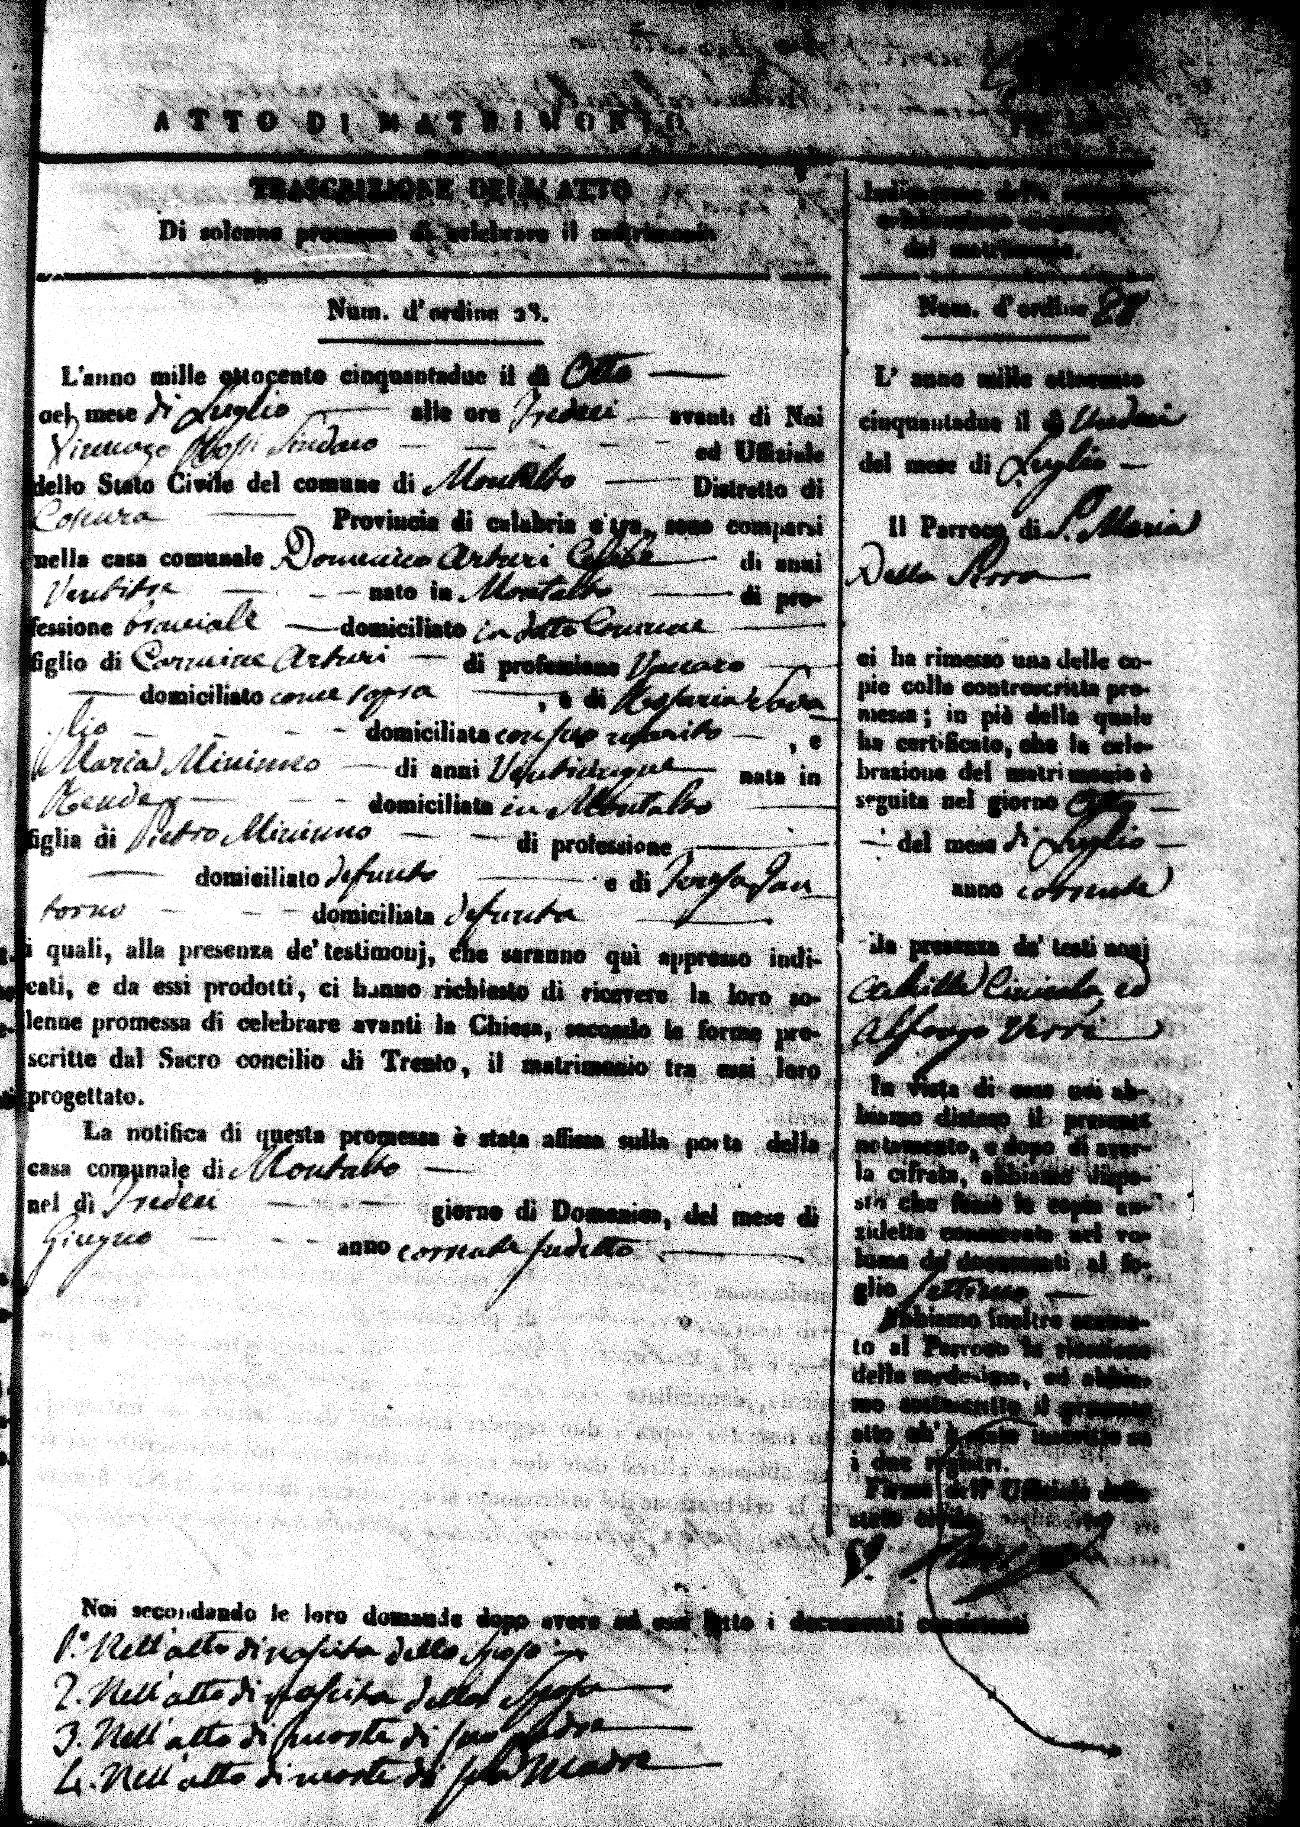 ATTO DI MATRIMONIO
TRASCRIZIONE DELL'ATTO
Di solenne promessa di celebrare il matrimonio
Num. d'ordine 28.
L'anno mille ottocento cinquantadue il dì Otto
nel mese di Luglio alle ore Tredeci avanti di Noi
Sindaco ed Uffiziale
dello Stato Civile del comune di Montalto Distretto di
Cosenza Provincia di calabria citra, sono comparsi
nella casa comunale Domenico Arturi Celibe di anni
Ventitre nato in Montalto di pro-
fessione bracciale domiciliato in detto Comune
figlio di Carmine Arturi di professione Vaccaro
domiciliato come sopra, e di
domiciliata con suo marito, e
Maria Mininno di anni Venticinque nata in
Rende domiciliata in Montalto
figlia di Pietro Mininno di professione
domiciliato defunto e di Teresa San
torno domiciliata defunta
i quali, alla presenza de' testimonj, che saranno quì appresso indi-
cati, e da essi prodotti, ci hanno richiesto di ricevere la loro so-
lenne promessa di celebrare avanti la Chiesa, secondo le forme pre-
scritte dal Sacro concilio di Trento, il matrimonio tra essi loro
progettato.
La notifica di questa promessa è stata affissa sulla porta della
casa comunale di Montalto
nel dì Tredeci giorno di Domenica, del mese di
Giugno anno corrente sudetto
Indicazione della
celebrazione
del matrimonio.
Num. d'ordine 28
L' anno mille ottocento
cinquantadue il dì Undeci
del mese di Luglio
Il Parroco di S. Maria
Della Serra
ci ha rimesso una delle co-
pie colla controscritta pro-
messa; in piè della quale
ha certificato, che la cele-
brazione del matrimonio è
seguita nel giorno Otto
del mese di Luglio
anno corrente
In presenza de' testimonj
ed
Alfonso Verri
In vista di esso noi ab-
biamo disteso il presente
notamento, e dopo di aver-
la cifrata, abbiamo dispo-
sto che fosse la copia an-
zidetta conservata nel vo-
lume de' documenti al fo-
glio settimo
Abbiamo inoltre accusa-
to al Parroco la ricezione
della medesima, ed abbia-
mo sottoscritto il presente
atto ch' è stato inscritto su
i due registri.
Firma dell' Uffiziale dello
stato civile.
Noi secondando le loro domande dopo avere ad essi letto i documenti consistenti
1.° Nell'atto di nascita dello Sposo
2. Nell'atto di nascita della Sposa
3. Nell'atto di morte di suo Padre
4. Nell'atto di morte di sua Madre